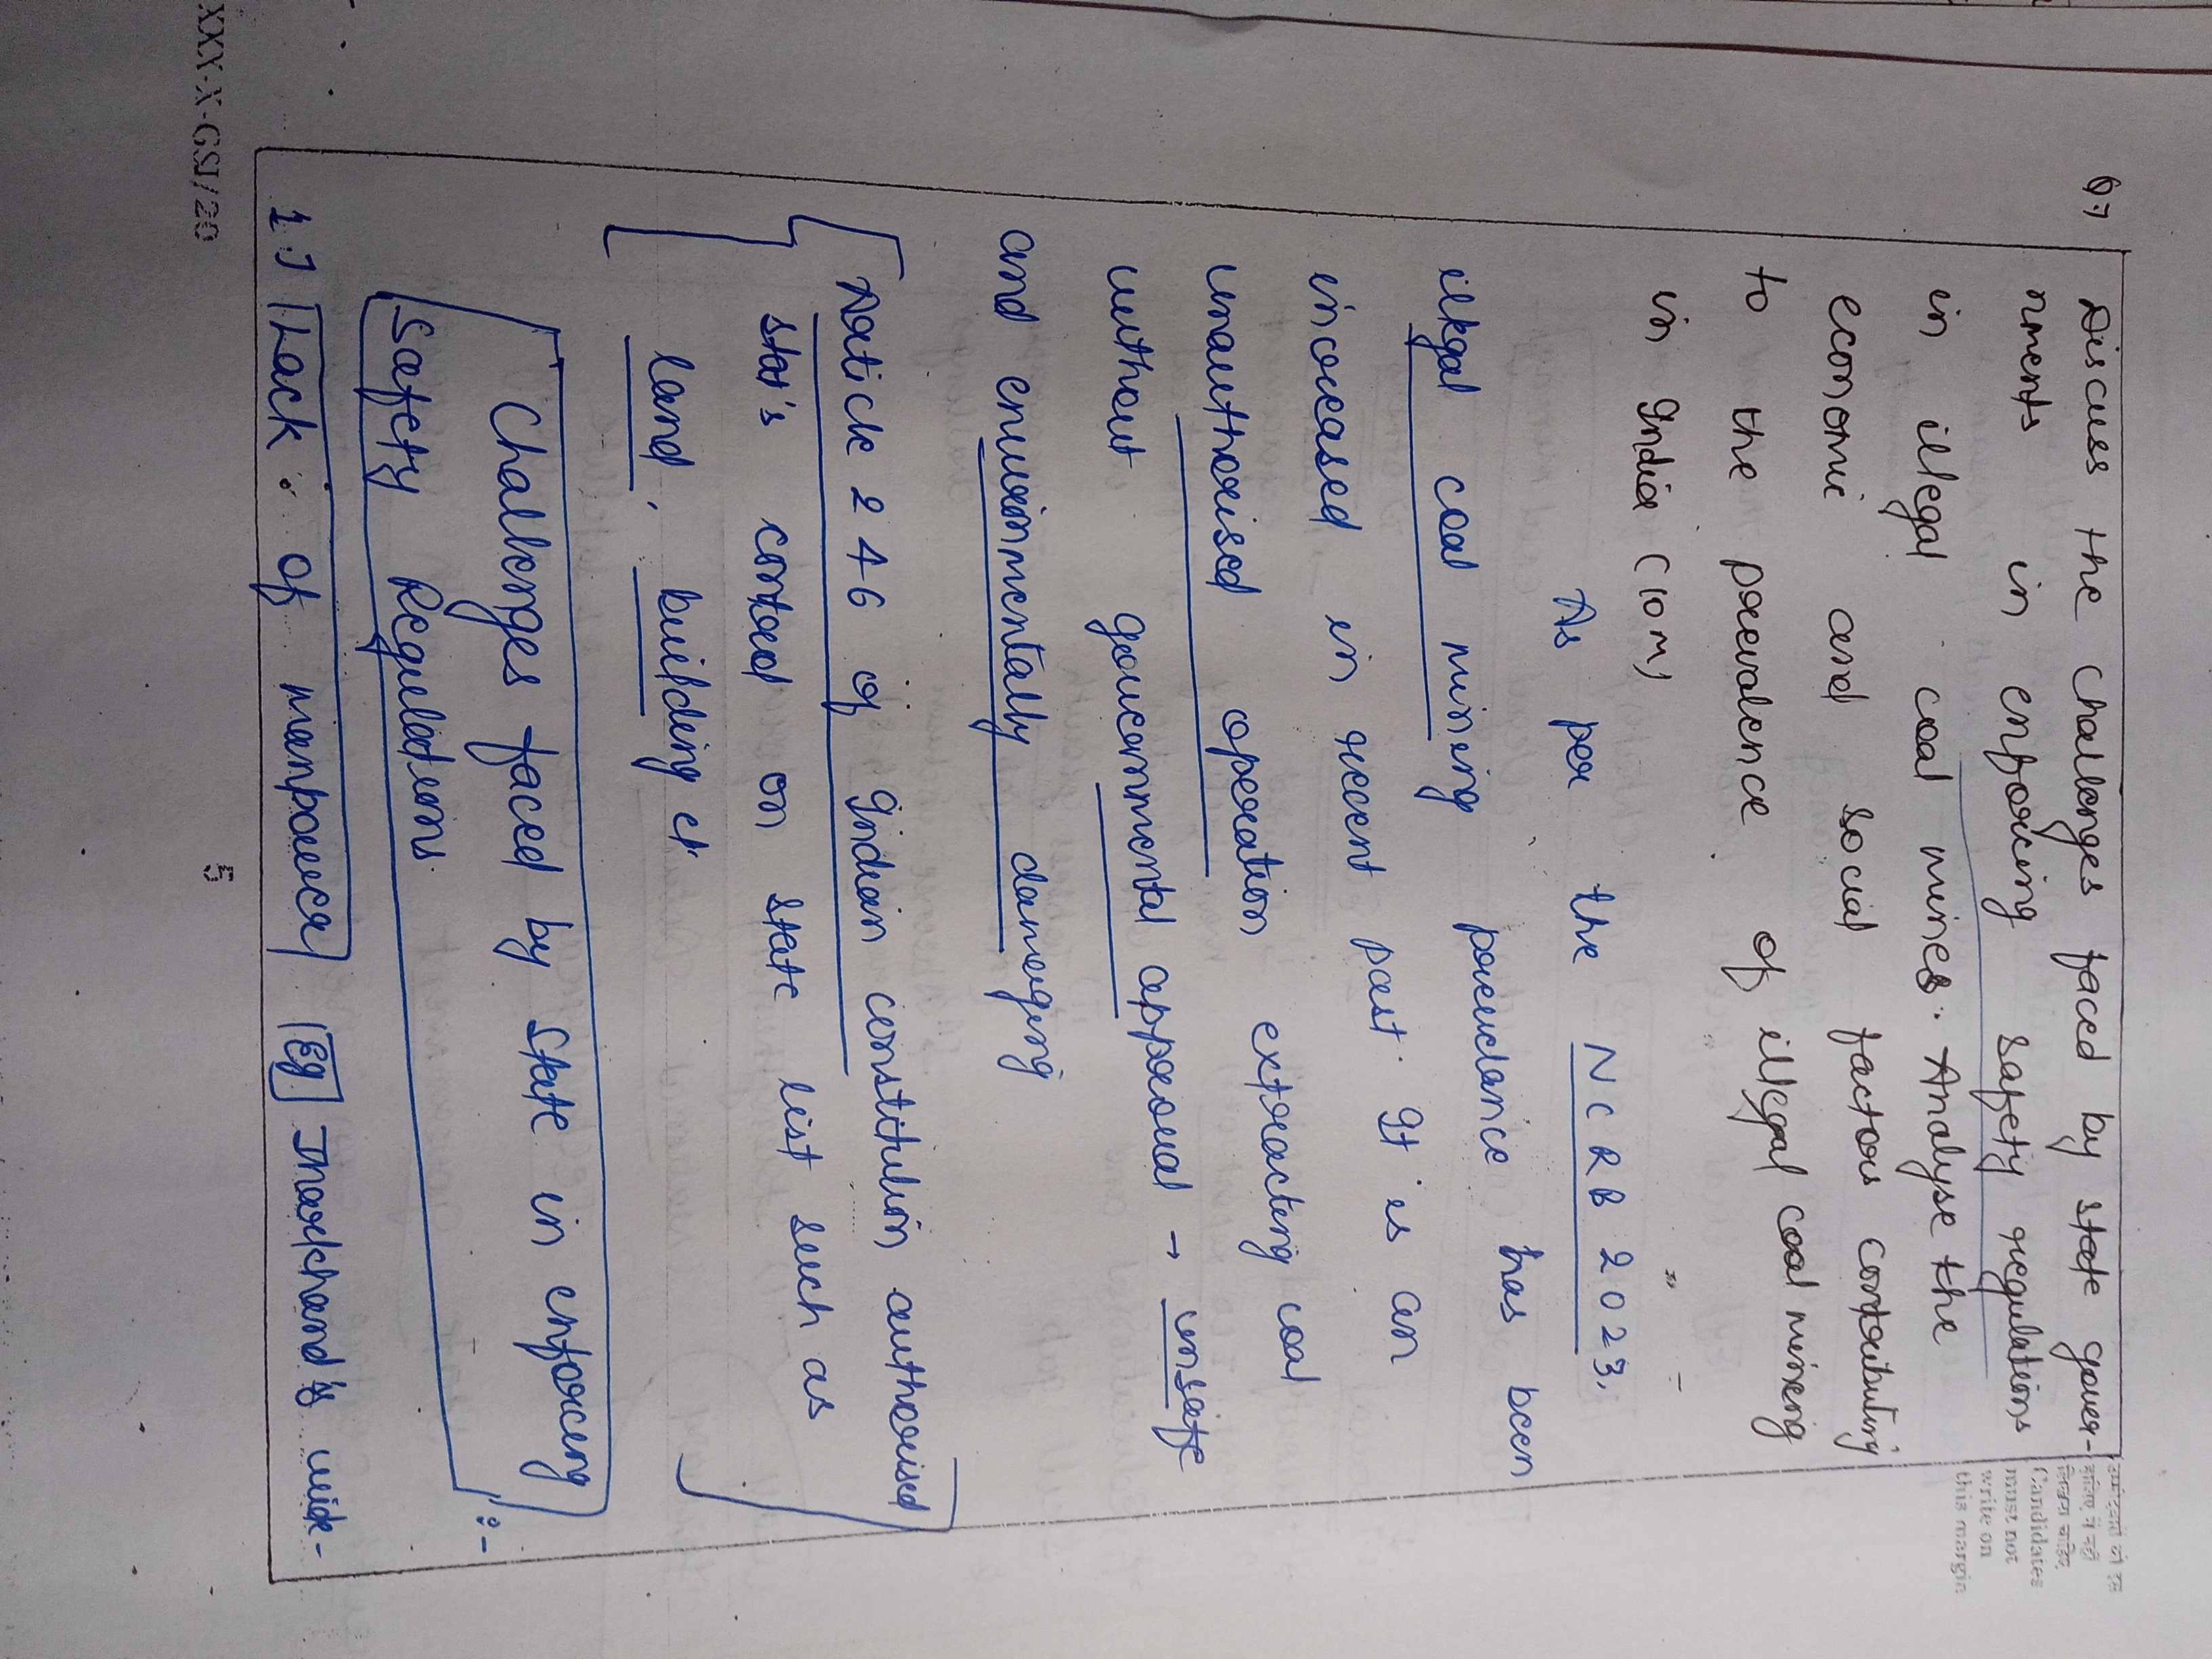 Q.1
Discuss the challenges faced by state gover-
nments in enforcing safety regulations
in illegal coal mines. Analyse the
economic and social factors contributing
to the prevalence of illegal coal mining
in India (10M)
As per the NCRB 2023,
illegal coal mining prevelance has been
increased in recent past. It is an
unauthorised operation extracting coal
without governmental approval → unsafe
and environmentally damaging
Article 246 of Indian constitution authorised
stat's control on state list such as
land, building et
Challenges faced by State in enforcing
Safety Regulations :-
1.) Lack of manpower Eg Jharkhand's wide-
Candidates
must not
write on
this margin
XXY-X-GSI/20
5